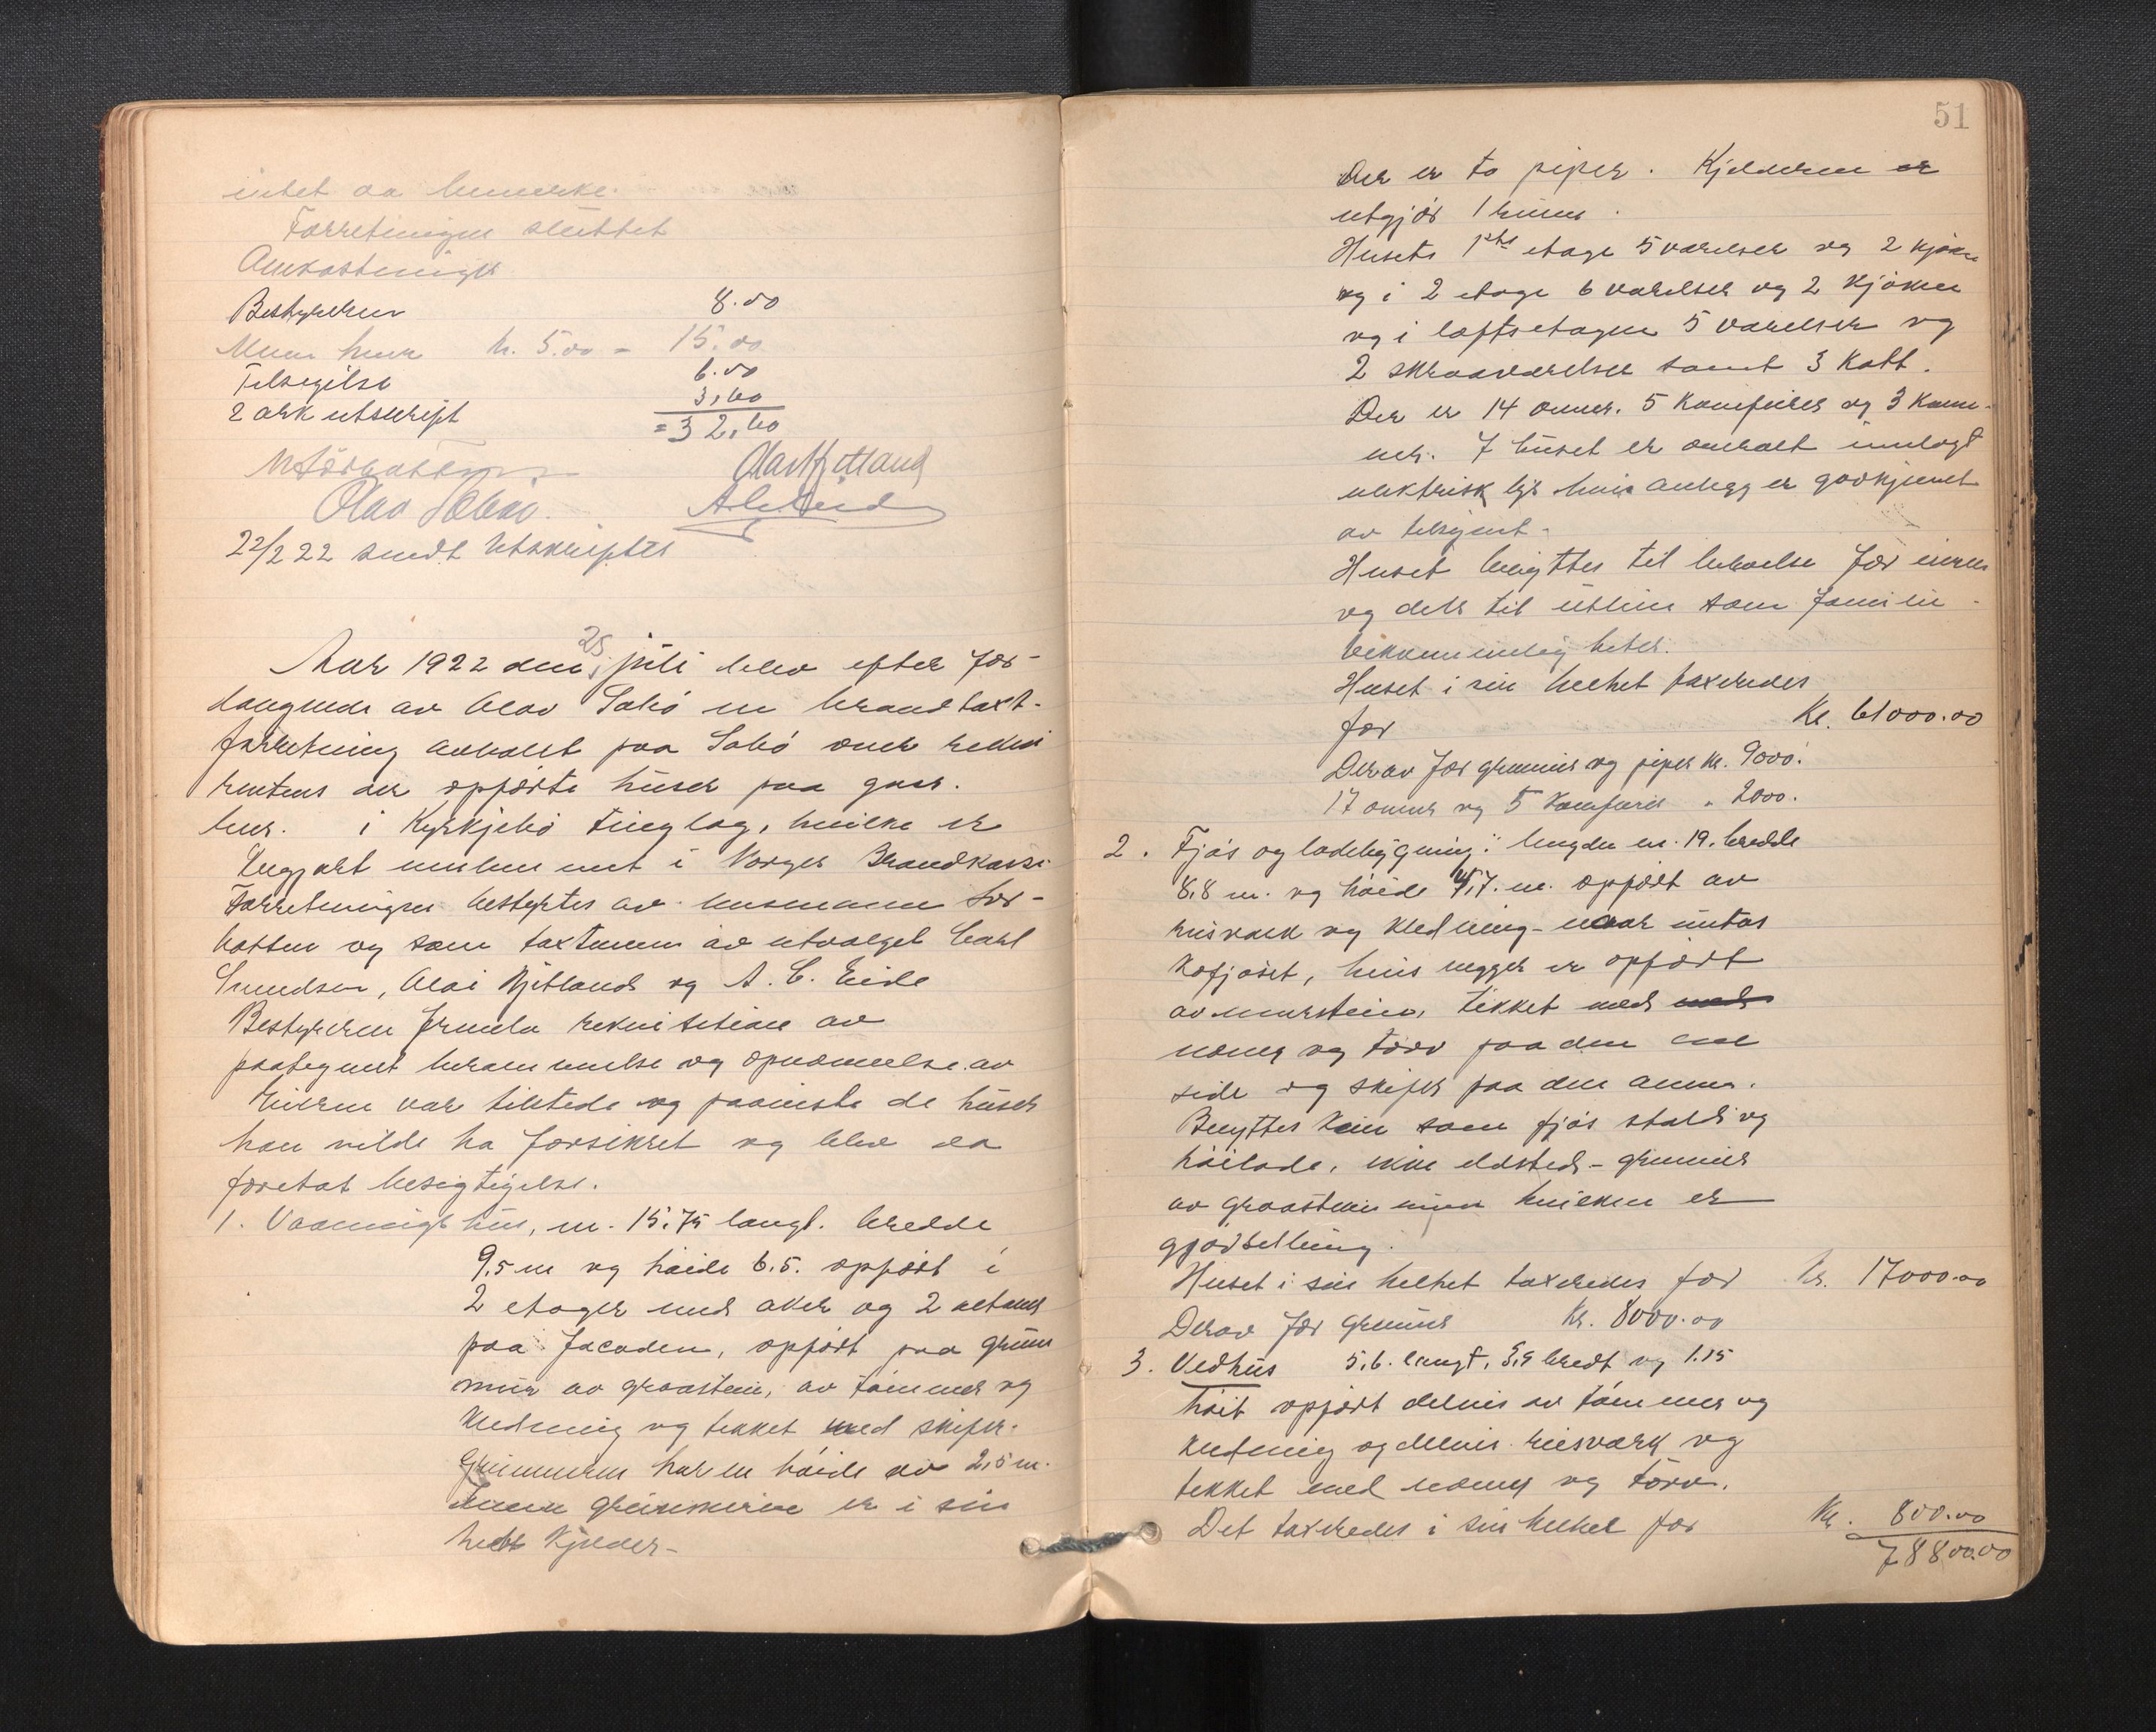 intet aa bemerke.
Forretningen sluttet
Omkostninger
Bestyreren 8.00
Menn hver kr. 5.00 = 15.00
Tilsigelse 6.00
2 ark utskript 3,60
= 32,60
Olav Sæbø.
22/2 22 sendt utskripter
Aar 1922 den 25 juli blev efter for-
langende av Olav Sæbø en brandtaxt-
forretning avholdt paa Sæbø over rekvi
rentens der opførte huser paa gaar.
brur. i Kyrkjebø tinglag, hvilke er
begjært innlemmet i Norges Brandkasse
Forretningen bestyrtes av lensmann Sør-
botten og som taxtmenn av utvalget Carl
Kjetland og A. C. Eide
Bestyreren fremla rekvisitione av
paategnet berammelse og opnævnelse av
Eieren var tilstede og paaviste de huser
han vilde ha forsikret og blev da
foretat besigtigelse.
1. Vaaningshus, m. 15,75 langt. bredde
9,5 m og høide 6.5. opført i
2 etager med aker og 2 altaner
paa facaden, opført paa grunn
mur av graastein, av tømmer og
kledning og tekket med skifer.
Grunmuren har en høide av 2,5 m.
grunmuren er i sin
helt kjelder-
51
Der er to piper. Kjelderen er
utgjør 1 rum.
Husets 1ste etage 5 værelser og 2 kjøken
og i 2 etage 6 værelser og 2 kjøken
og i loftsetagen 5 værelser og
2 skraaværelser samt 3 kott.
Der er 14 ovner. 5 komfurer og 3 kam-
mer. I huset er overalt innlagt
elektrisk lys hvis anlegg er godkjennet
av tilsynet.
Huset benyttes til bebœlse for eieren
og dels til utleie som familie-
bekvemmelig heter.
Huset i sin helhet taxeredes
for Kr. 61000.00
Derav for grunnur og piper kr. 9000.
17 ovner og 5 komfurer " 2000.
2. Fjøs og ladebygning: lengde m. 19. bredde
8,8 m. og høide 4,7. m. opført av
reisverk og kledning- untas
kofjøset, hvis vegger er opført
av murstein, tekket med med
never og torv paa den ene
side og skifer paa den annen.
Benyttes kun som fjøs stald og
høilade, ikke eldsted- grunnur
av graastein hvilken er
gjødselkjeller.
Huset i sin helhet taxeredes for kr. 17000.00
Derav for grunnur Kr. 8000.00
3. Vedhus 5,6. langt, 3,9 bredt og 1.15
høit opført delvis av tømmer og
kledning og delvis reisverk og
tekket med never og torv.
Det taxeredes i sin helhet for Kr. 800.00
78800.00